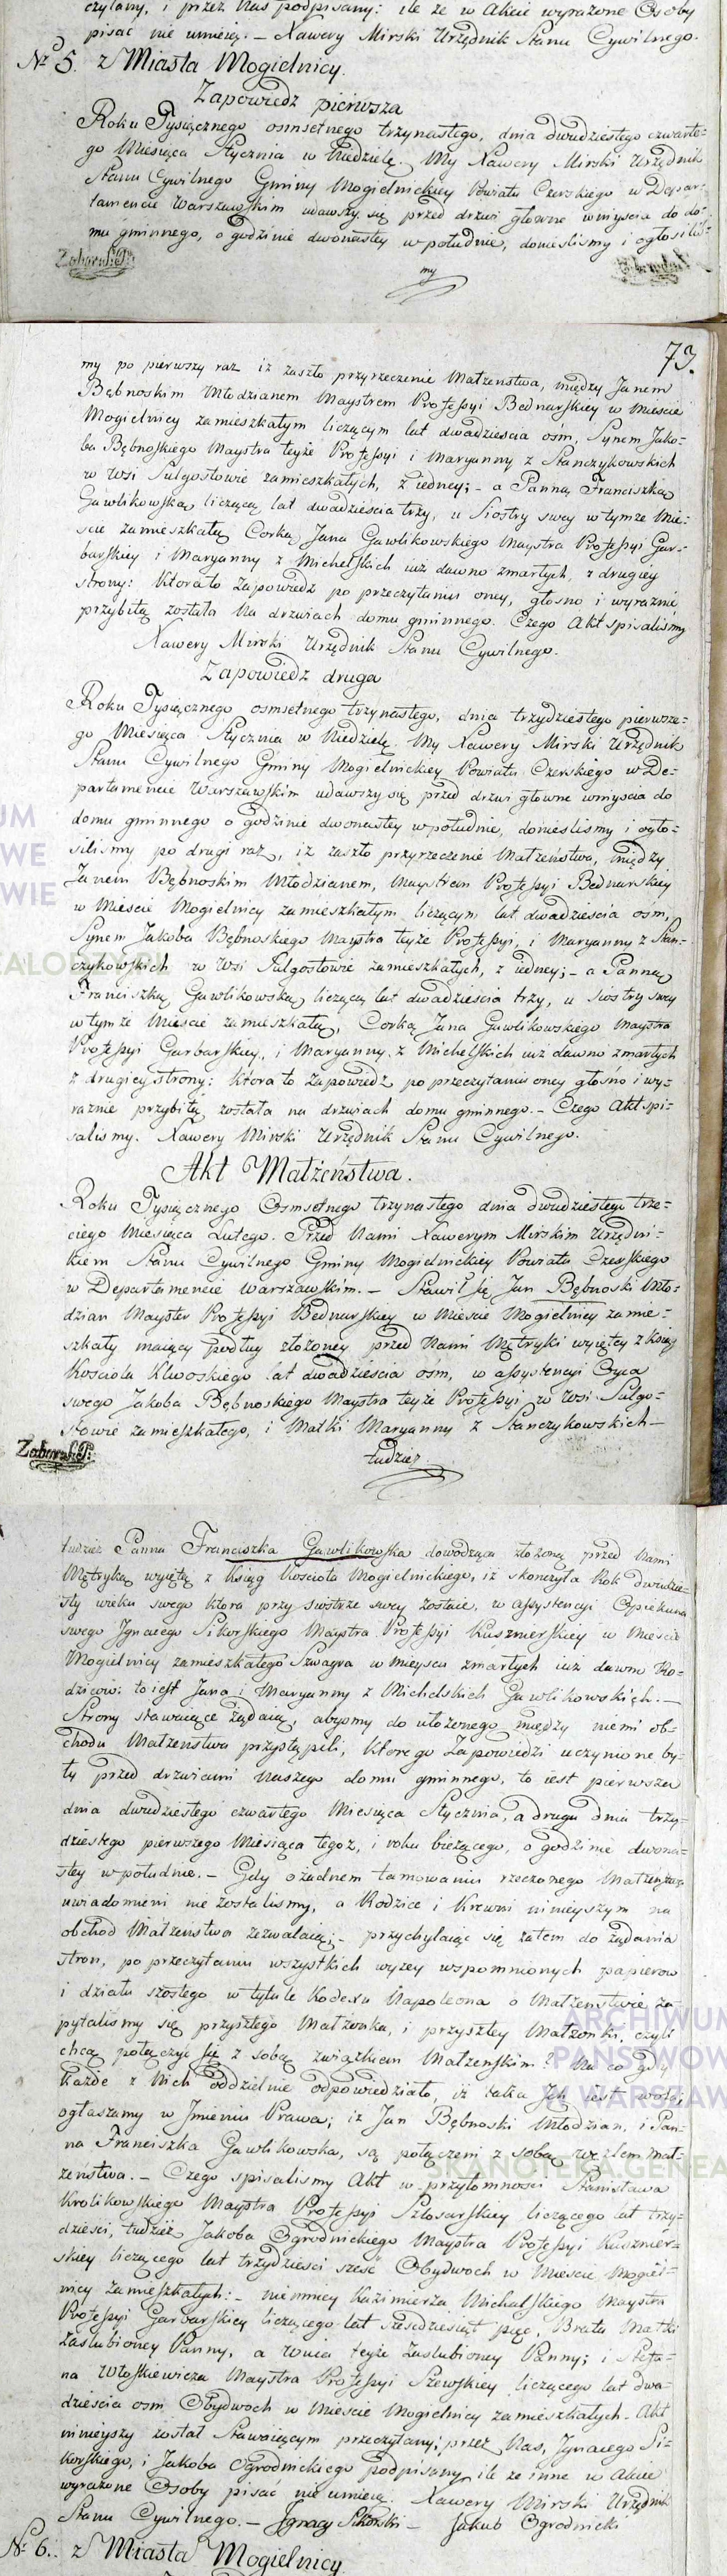 czytany, i przez Nas podpisany: ile ze w Akcie wyrażone Osoby
pisać nie umieią. – Xawery Mirski Urzędnik Stanu Cywilnego.
Nº 5. z Miasta Mogielnicy.
Zapowiedz pierwsza
Roku Tysiącznego osmsetnego trzynastego, dnia dwudziestego czwarte-
go Miesiąca Stycznia w Niedzielę. My Xawery Mirski Urzędnik
Stanu Cywilnego Gminy Mogielnickiey Powiatu Czerskiego w Depar-
tamencie Warszawskim udawszy się przed drzwi głowne wniyscia do do-
mu gminnego, o godzinie dwonastey w południe, donieslismy i ogłosilis-
my
73.
my po pierwszy raz iż zaszło przyrzeczenie Małżenstwa, między Janem
Bębnoskim Młodzianem Maystrem Professyi Bednarskiey w Miescie
Mogielnicy zamieszkałym liczącym lat dwadziescia osm, Synem Jako-
ba Bębnoskiego Maystra teyże Professyi i Maryanny z Stanczykowskich
w Wsi Sulgostowie zamieszkałych, z iedney; – a Panną Franciszką
Gawlikowską liczącą lat dwadziescia trzy, u Siostry swey w tymze Mie-
scie zamieszkałą Corką Jana Gawlikowskiego Maystra Professyi Gar-
barskiey i Maryanny z Michelskich iuz dawno zmarłych, z drugiey
strony: ktorato Zapowiedz po przeczytaniu oney, głosno i wyraznie,
przybitą została na drzwiach domu gminnego. Czego Akt spisalismy
Xawery Mirski Urzędnik Stanu Cywilnego.
Zapowiedz druga
Roku Tysiącznego osmsetnego trzynastego, dnia trzydziestego pierwsze-
go Miesiąca Stycznia w Niedzielę My Xawery Mirski Urzędnik
Stanu Cywilnego Gminy Mogielnickiey Powiatu Czerskiego w De-
partamencie Warszawskim udawszy się przed drzwi głowne wniyscia do
domu gminnego o godzinie dwonastey w południe, donieslismy i ogło-
silismy po drugi raz, iż zaszło przyrzeczenie Małżeństwa, między
Janem Bębnoskim Młodzianem, Maystrem Professyi Bednarskiey
w Miescie Mogielnicy zamieszkałym liczącym lat dwadziescia osm,
Synem Jakoba Bębnoskiego Maystra teyże Professyi, i Maryanny z Stan-
czykowskich w Wsi Sulgostowie zamieszkałych, z iedney; – a Panną
Franciszką Gawlikowską liczącą lat dwadziescia trzy, u siostry swey
w tymze Miescie zamieszkałą, Corką Jana Gawlikowskiego Maystra
Professyi Garbarskiey, i Maryanny z Michelskich iuż dawno zmarłych
z drugiey strony: ktora to Zapowiedz po przeczytaniu oney głośno i wy-
raznie przybitą została na drzwiach domu gminnego. – Czego Akt spi-
salismy. Xawery Mirski Urzędnik Stanu Cywilnego.
Akt Małżeństwa.
Roku Tysiącznego Osmsetnego trzynastego dnia dwudziestego trze-
ciego Miesiąca Lutego. Przed Nami Xawerym Mirskim Urzędni-
kiem Stanu Cywilnego Gminy Mogielnickiey Powiatu Czerskiego
w Departamencie Warszawskim. – Stawił się Jan Bębnoski Mło-
dzian Mayster Professyi Bednarskiey w Miescie Mogielnicy zamie-
szkały maiący podług złożoney przed Nami Mętryki wyiętey z Xsiąg
Kosciola Klwoskiego lat dwadziescia osm, w assystencyi Oyca
swego Jakoba Bębnoskiego Maystra teyże Professyi w Wsi Sulgo-
stowie zamieszkałego, i Matki Maryanny z Stanczykowskich –
tudziez
tudziez Panna Franciszka Gawlikowska dowodząca złożoną przed Nami
Mętryką wyiętą z Xsiąg Kosciola Mogielnickiego, iż skonczyła Rok dwudzie-
sty wieku swego ktora przy siostrze swey zostaie, w assystencyi Opiekuna
swego Jgnacego Sikorskiego Maystra Professyi Kusznierskiey w Miescie
Mogielnicy zamieszkałego Szwagra w mieyscu zmarłych iuz dawno Ro-
dzicow: to iest Jana i Maryanny z Michelskich Gawlikowskich: –
Strony stawaiące żądaią, abysmy do ułożonego między niemi ob-
chodu Małżenstwa przystąpili, ktorego Zapowiedzi uczynione by-
ły przed drzwiami Naszego domu gminnego, to iest pierwsza
dnia dwudziestego czwartego Miesiąca Stycznia, a druga dnia trzy-
dziestego pierwszego Miesiąca tegoż, i roku bieżącego, o godzinie dwona-
stey w południe. – Gdy o żadnem tamowaniu rzeczonego Małżenstwa
uwiadomieni nie zostalismy, a Rodzice i Krewni ninieyszym na
obchod Małżenstwa zezwalaią; – przychylaiąc się zatem do żądania
stron, po przeczytaniu wszystkich wyzey wspomnionych papierow
i działu szostego w tytule Kodexu Napoleona o Małżenstwie za-
pytalismy się przyszłego Małżonka, i przyszłey Małżonki, czyli
chcą połączyć się z sobą związkiem Małżenskim? Na co gdy
każde z Nich oddzielnie odpowiedziało, iż taka Jch iest wola;
ogłaszamy w Jmieniu Prawa; iz Jan Bębnoski Młodzian, i Pan-
na Franciszka Gawlikowska, są połączeni z sobą węzłem Mał-
żeństwa. – Czego spisalismy Akt w przytomnosci Stanisława
Krolikowskiego Maystra Professyi Szlosarskiey liczącego lat trzy-
dziesci, tudzież Jakoba Ogrodnickiego Maystra Professyi Kusznier-
skiey liczącego lat trzydziesci szesc Obydwoch w Miescie Mogiel-
nicy zamieszkałych: – niemniey Kazimierza Michalskiego Maystra
Professyi Garbarskiey liczącego lat szescdziesiąt pięc, Brata Matki
zaslubioney Panny, a Wuia teyże Zaslubioney Panny; i Stefa-
na Włoskiewicza Maystra Professyi Szewskiey liczącego lat dwa-
dziescia osm Obydwoch w Miescie Mogielnicy zamieszkałych. Akt
ninieyszy został Stawaiącym przeczytany; przez Nas, Jgnacego Si-
korskiego, i Jakoba Ogrodnickiego podpisany ile ze inne w Akcie
wyrażone Osoby pisać nie umieią. Xawery Mirski Urzędnik
Stanu Cywilnego. – Jgnacy Sikorski – Jakub Ogrodnicki
Nº 6. z Miasta Mogielnicy.